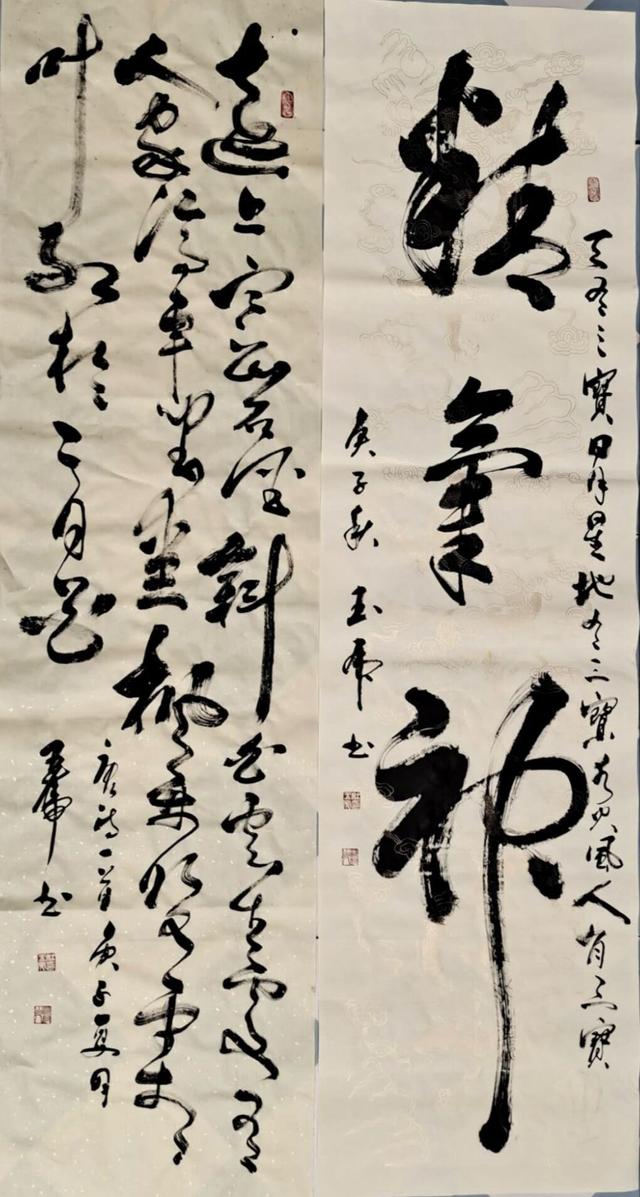 天有三寶日月星地有三寶水火風人有三寶
精氣神
庚子春玉 书
遠上寒山石径斜白雲生處有
人家停車坐爱枫林晚霜
叶红於二月花
唐诗一首庚子夏月
玉 书